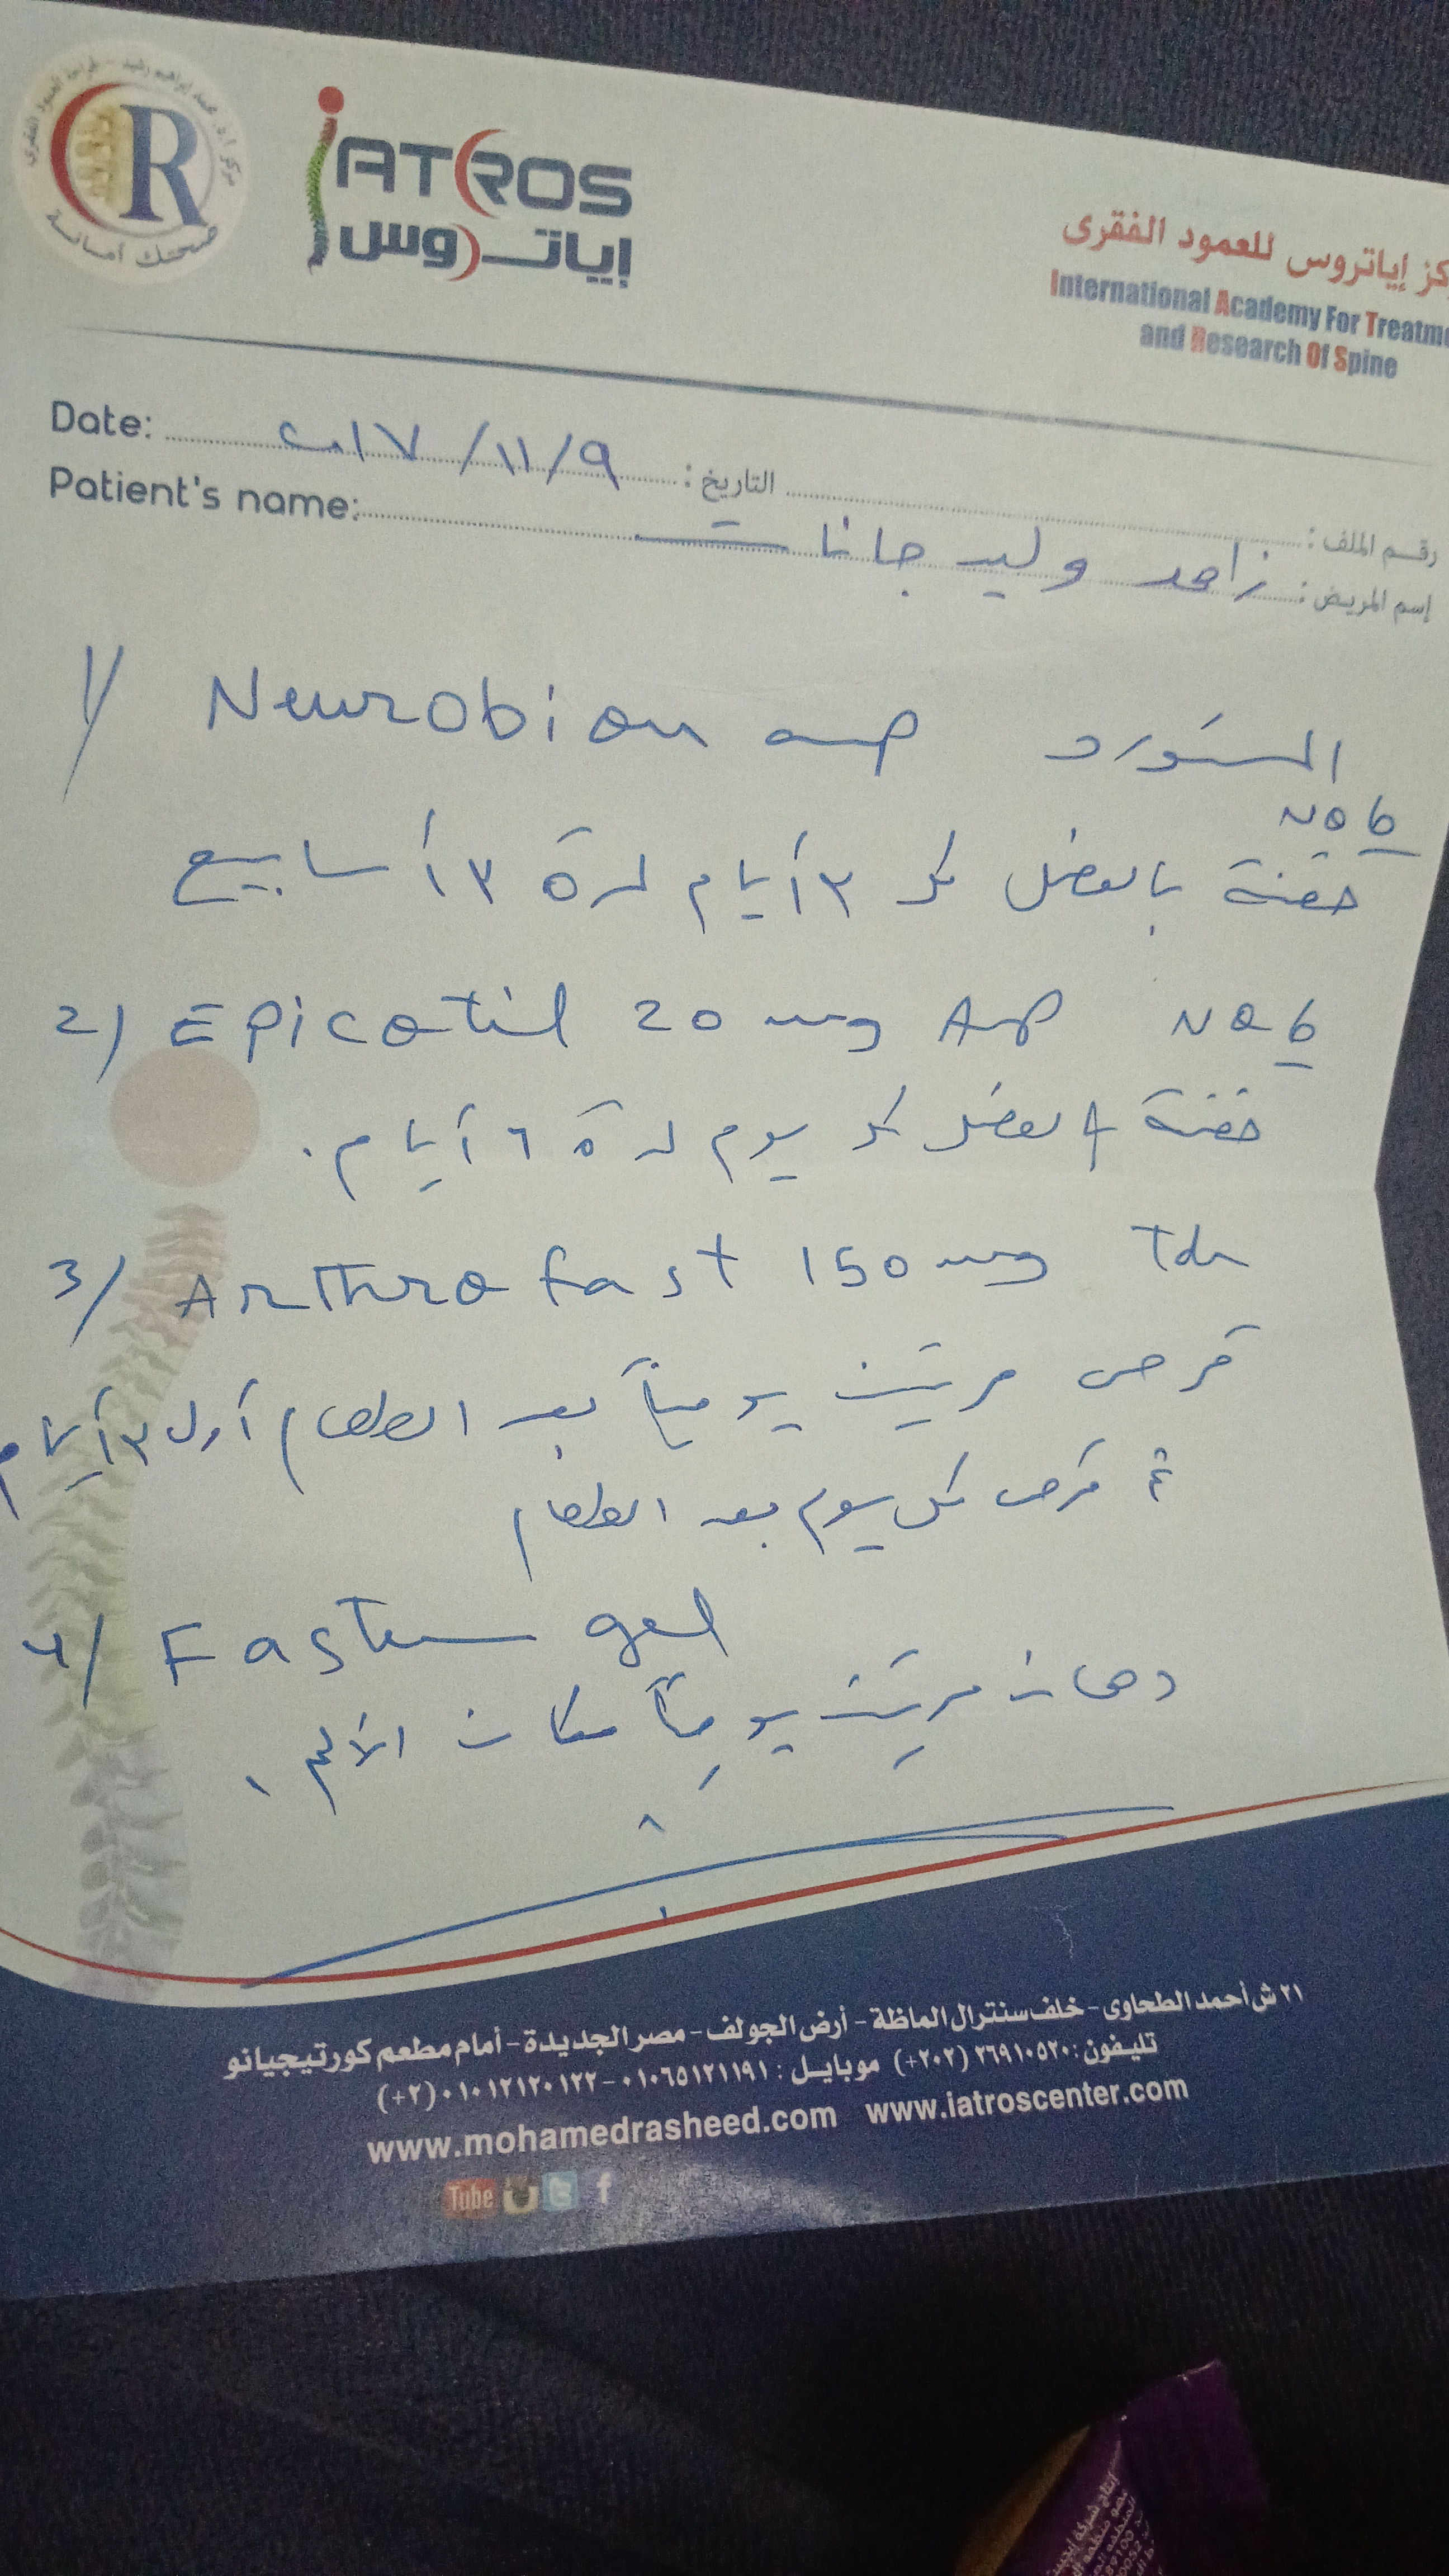 صحتك أمانة
R
iATROS
إياتروس
كز إياتروس للعمود الفقرى
International Academy For Treatme
and Research Of Spine
Date: ٢٠١٧/١١/٩ التاريخ :
رقم الملف :
Patient's name: زاهد وليد جانات إسم المريض :
1/ Neurobion amp المستورد
No 6
حقنة بالعضل كل ٣ أيام لمدة ٣ أسابيع
2) Epicotil 20 mg Amp No 6
حقنة بالعضل كل يوم لمدة ٦ أيام.
3/ Arthrofast 150 mg Tab
قرص مرتين يومياً بعد الطعام أول ٣ أيام
ثم قرص كل يوم بعد الطعام
4/ Fastum gel
دهان مرتين يومياً مكان الألم.
٢١ ش أحمد الطحاوى - خلف سنترال الماظة - أرض الجولف - مصر الجديدة - أمام مطعم كورتيجيانو
تليفون: ٢٦٩١٠٥٢٠ (٢٠٢+) موبايل : ٠١٠٦٥١٢١١٩١ - ٠١٠١٢١٢٠١٢٢ (٢+)
www.mohamedrasheed.com www.iatroscenter.com
Tube t f